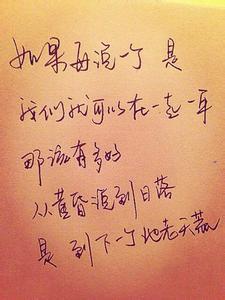 如果再说一个 是
我们就可以在一起
那该有多好
从黄昏 到日落
是 到下一个地老天荒